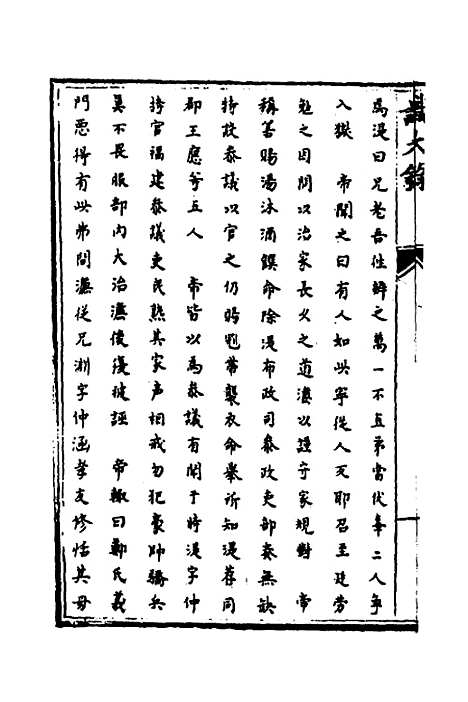 為湜曰兄老吾往辨之萬一不直弟當伏辜二人爭
入獄　帝聞之曰有人如此寧從人反耶召至廷勞
勉之因問以治家長久之道濂以謹守家規對　帝
稱善賜湯沐酒饌命除湜布政司叅政吏部奏無缺
特設叅議以官之仍賜冠帶襲衣命舉所知湜荐同
郡王應等五人　帝皆以為叅議有聞于時湜字仲
持官福建叅議吏民熟其家声相戒勿犯豪帥驕兵
莫不畏服部內大治濂後復被誣　帝輒曰鄭氏義
門惡得有此弗問濂從兄淵字仲涵孝友修恬其母